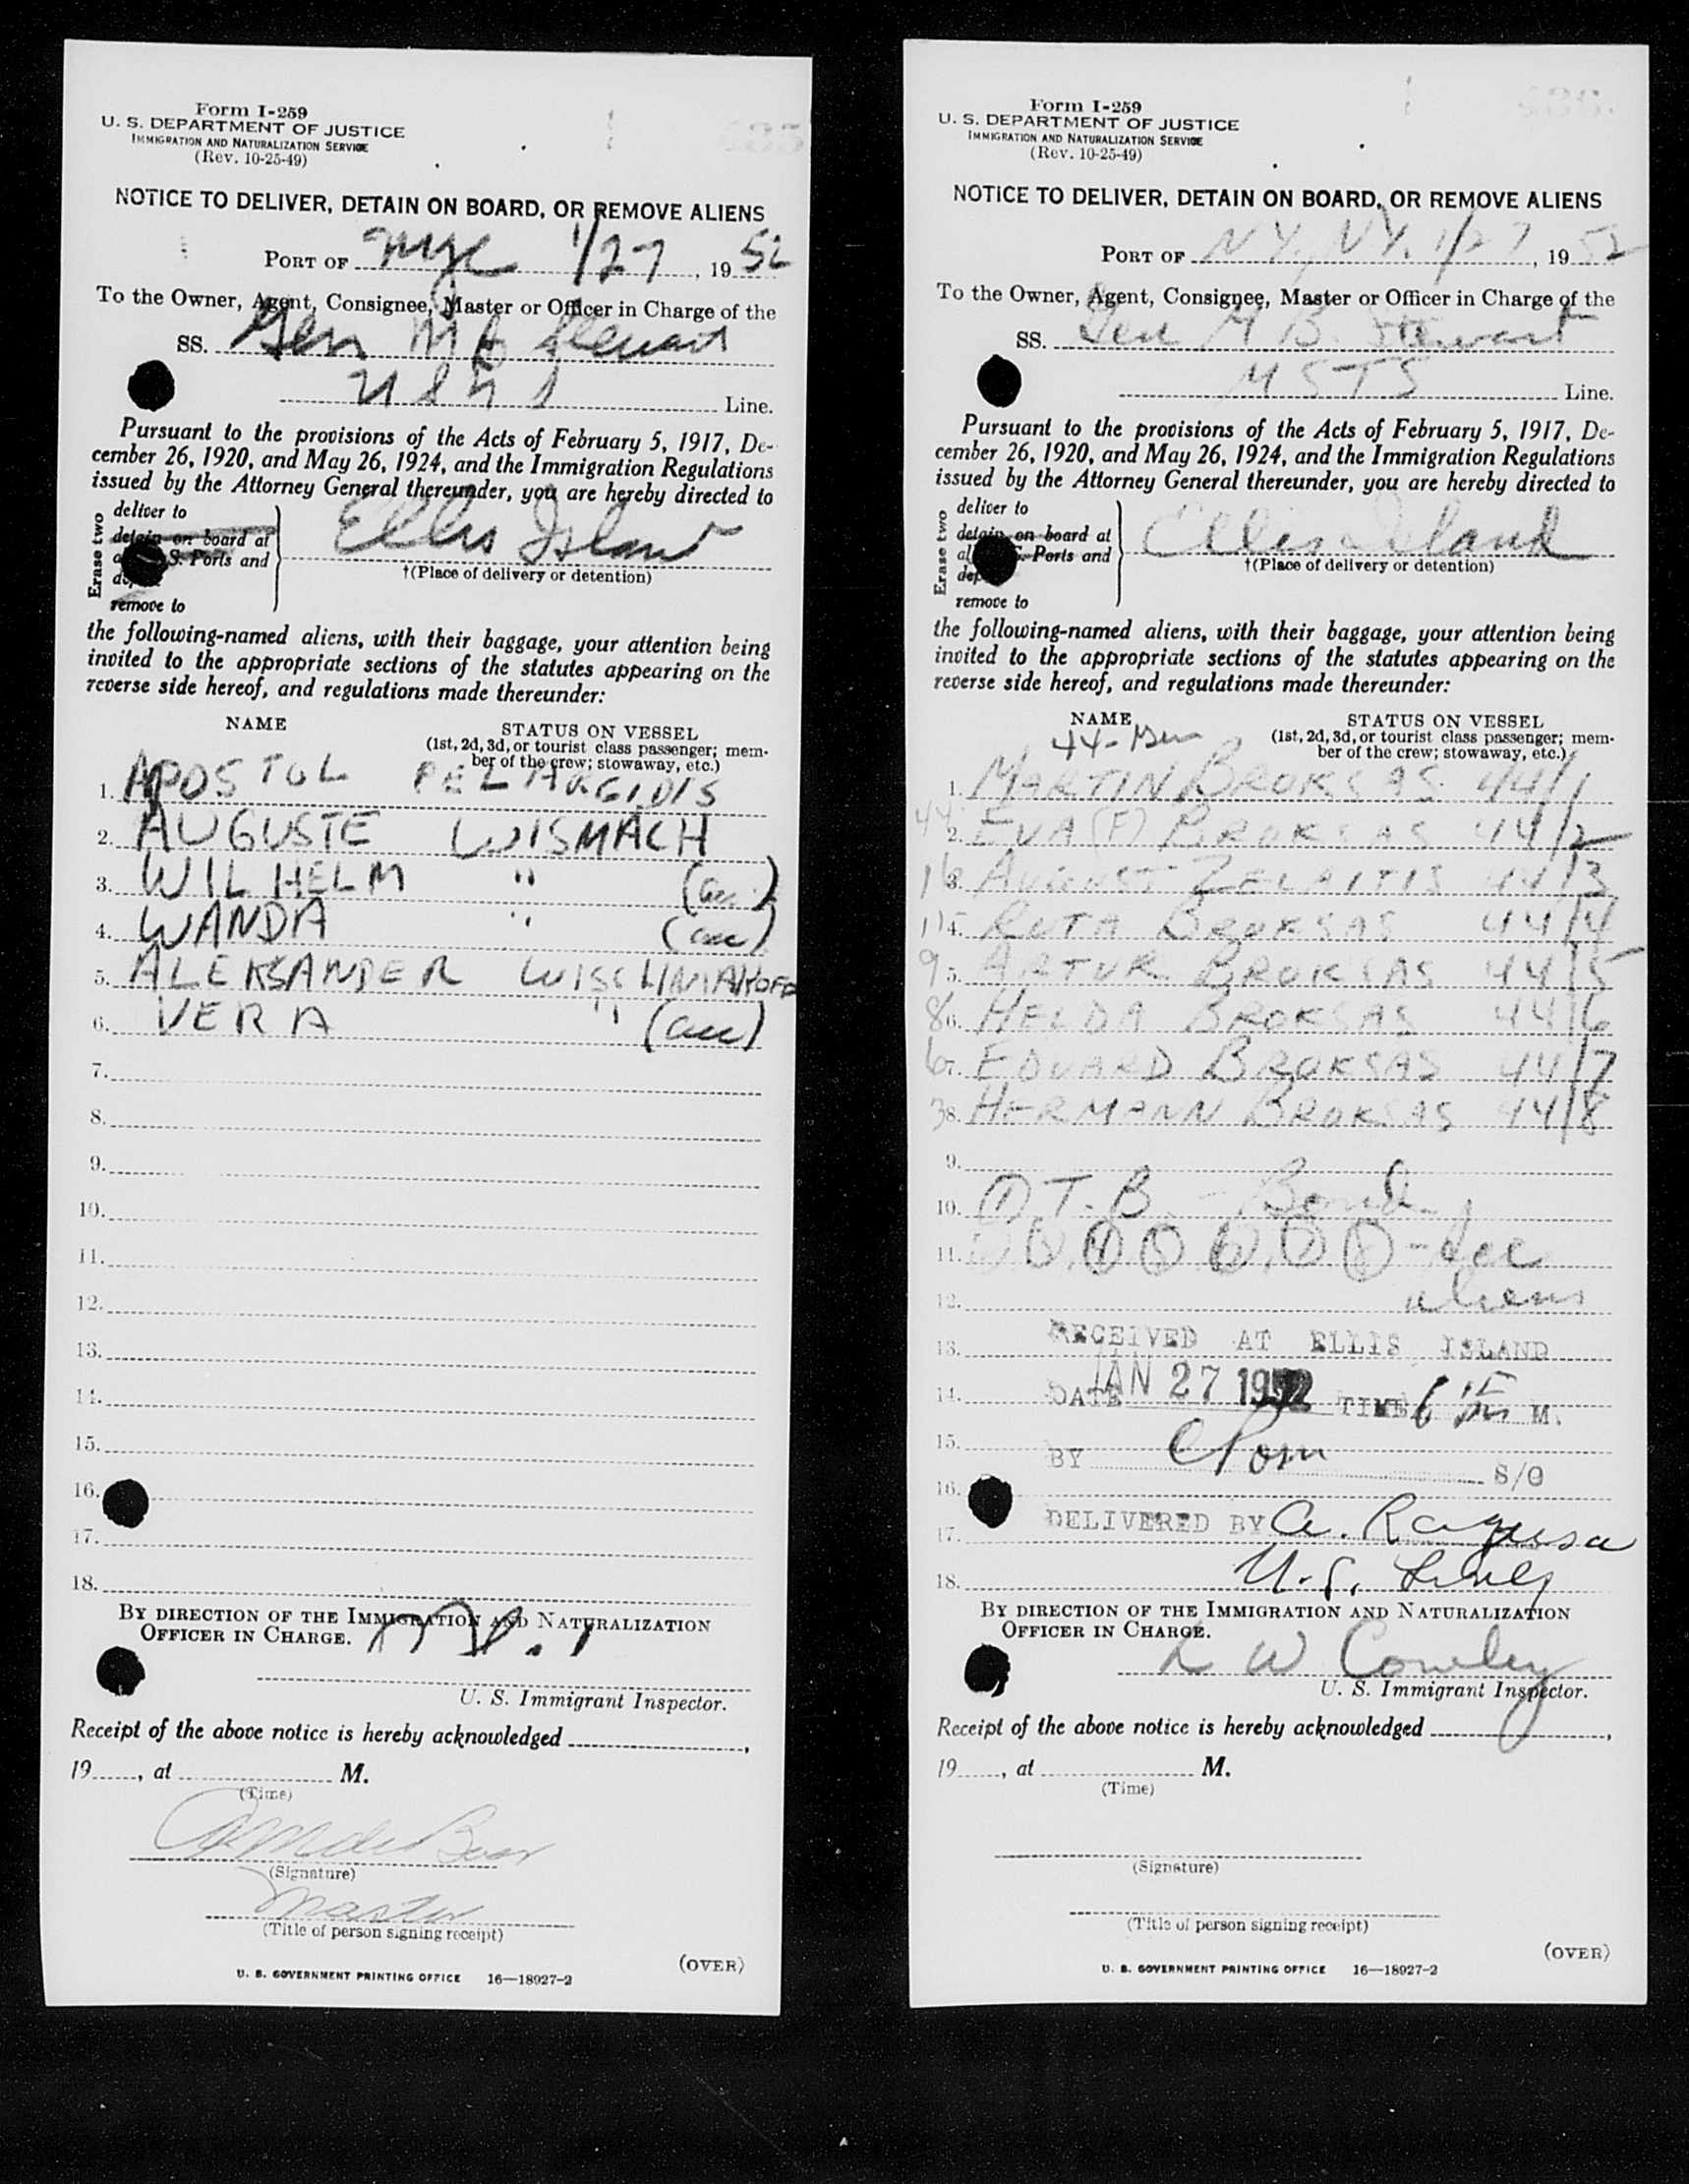 Form I-259
U. S. DEPARTMENT OF JUSTICE
IMMIGRATION AND NATURALIZATION SERVICE
(Rev. 10-25-49)
NOTICE TO DELIVER, DETAIN ON BOARD, OR REMOVE ALIENS
PORT OF NYC 1/27, 19 52
To the Owner, Agent, Consignee, Master or Officer in Charge of the
SS. Gen M B Stewart
Line.
Pursuant to the provisions of the Acts of February 5, 1917, De-
cember 26, 1920, and May 26, 1924, and the Immigration Regulations
issued by the Attorney General thereunder, you are hereby directed to
Erase two
deliver to
detain on board at
S. Ports and
remove to
Ellis Island
†(Place of delivery or detention)
the following-named aliens, with their baggage, your attention being
invited to the appropriate sections of the statutes appearing on the
reverse side hereof, and regulations made thereunder:
NAME
STATUS ON VESSEL
(1st, 2d, 3d, or tourist class passenger; mem-
ber of the crew; stowaway, etc.)
1. APOSTOL PELARGIDIS
2. AUGUSTE WISMACH
3. WILHELM " (acc)
4. WANDA " (acc)
5. ALEKSANDER
6. VERA " (acc)
7.
8.
9.
10.
11.
12.
13.
14.
15.
16.
17.
18.
BY DIRECTION OF THE IMMIGRATION AND NATURALIZATION
OFFICER IN CHARGE.
U. S. Immigrant Inspector.
Receipt of the above notice is hereby acknowledged
19, at M.
(Time)
(Signature)
Master
(Title of person signing receipt)
(OVER)
U. S. GOVERNMENT PRINTING OFFICE 16—18927-2
Form I-259
U. S. DEPARTMENT OF JUSTICE
IMMIGRATION AND NATURALIZATION SERVICE
(Rev. 10-25-49)
NOTICE TO DELIVER, DETAIN ON BOARD, OR REMOVE ALIENS
PORT OF N.Y., N.Y. 1/27, 19 52
To the Owner, Agent, Consignee, Master or Officer in Charge of the
SS. Gen M B. Stewart
MSTS Line.
Pursuant to the provisions of the Acts of February 5, 1917, De-
cember 26, 1920, and May 26, 1924, and the Immigration Regulations
issued by the Attorney General thereunder, you are hereby directed to
Erase two
deliver to
detain on board at
Ports and
remove to
Ellis Island
†(Place of delivery or detention)
the following-named aliens, with their baggage, your attention being
invited to the appropriate sections of the statutes appearing on the
reverse side hereof, and regulations made thereunder:
NAME
STATUS ON VESSEL
(1st, 2d, 3d, or tourist class passenger; mem-
ber of the crew; stowaway, etc.)
1. MARTIN BROKSAS 44/1
44 2. EVA (F) BROKSAS 44/2
16 3. AUGUST ZELAITIS 44/3
11 4. RUTA BROKSAS 44/4
9 5. ARTUR BROKSAS 44/5
8 6. HELDA BROKSAS 44/6
6 7. EDUARD BROKSAS 44/7
3 8. HERMANN BROKSAS 44/8
9.
10. (1) T.B. - Bond
11.
12. aliens
13. RECEIVED AT ELLIS ISLAND
14. DATE JAN 27 1952 TIME 6 15 M.
15. BY S/O
16.
17. DELIVERED BY A. Ragusa
18. U.S. Lines
BY DIRECTION OF THE IMMIGRATION AND NATURALIZATION
OFFICER IN CHARGE.
L W Cowley
U. S. Immigrant Inspector.
Receipt of the above notice is hereby acknowledged
19, at M.
(Time)
(Signature)
(Title of person signing receipt)
(OVER)
U. S. GOVERNMENT PRINTING OFFICE 16—18927-2